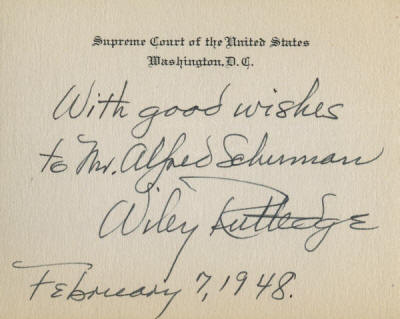 Supreme Court of the United States
Washington, D.C.
With good wishes
to Mr. Alfred Schurman
Wiley Rutledge
February 7, 1948.